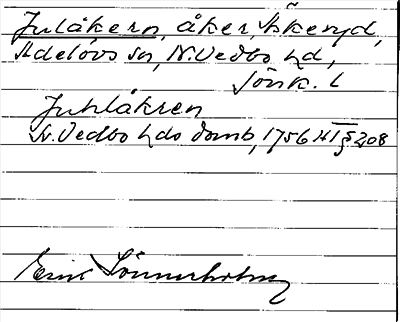 Julåkern, åker, Askeryd,
Adelövs sn, N. Vedbo hd,
Jönk. l
Juhlåkren
N. Vedbo hds domb, 1756 HT § 208
Erik Lönnerholm